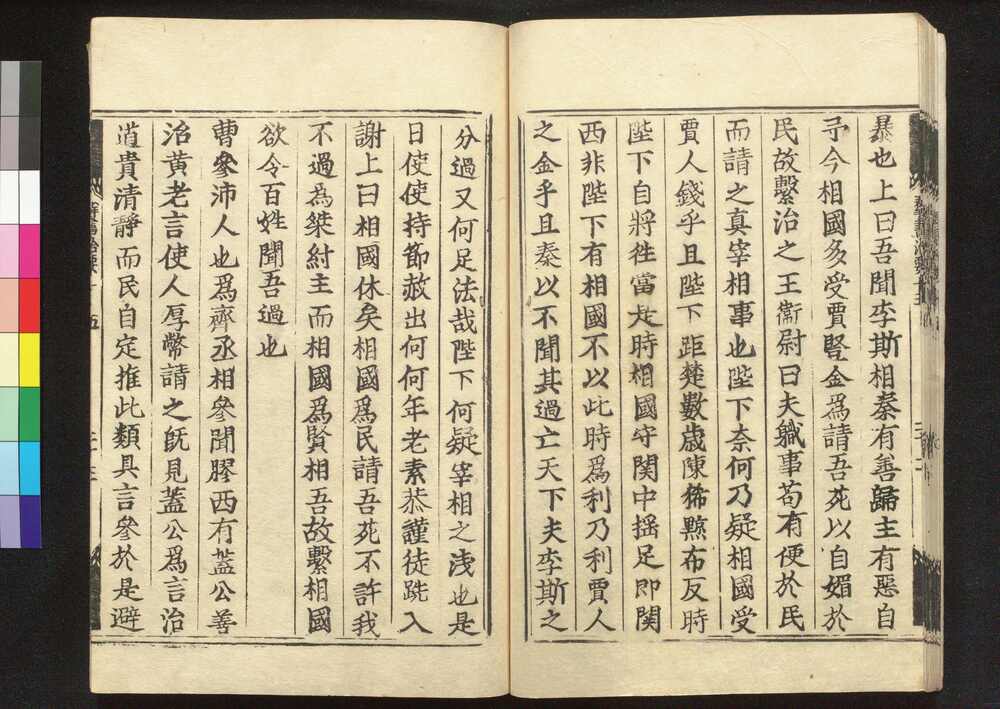 暴也上曰吾聞李斯相秦有善歸主有惡自
予今相國多受賈豎金爲請吾死以自媚於
民故繫治之王衞尉曰夫職事苟有便於民
而請之真宰相事也陛下奈何乃疑相國受
賈人錢乎且陛下距楚數歲陳狶黥布反時
陛下自將徃當是時相國守関中揺足即関
西非陛下有相國不以此時爲利乃利賈人
之金乎且秦以不聞其過亡天下夫李斯之
分過又何足法哉陛下何疑宰相之浅也是
日使使持節赦出何何年老素恭謹徒跣入
謝上曰相國休矣相國爲民請吾死不許我
不過爲桀紂主而相國爲賢相吾故繫相國
欲令百姓聞吾過也
曹參沛人也爲齊丞相參聞膠西有蓋公善
治黄老言使人厚幣請之旣見蓋公爲言治
道貴清靜而民自定推此類具言參於是避